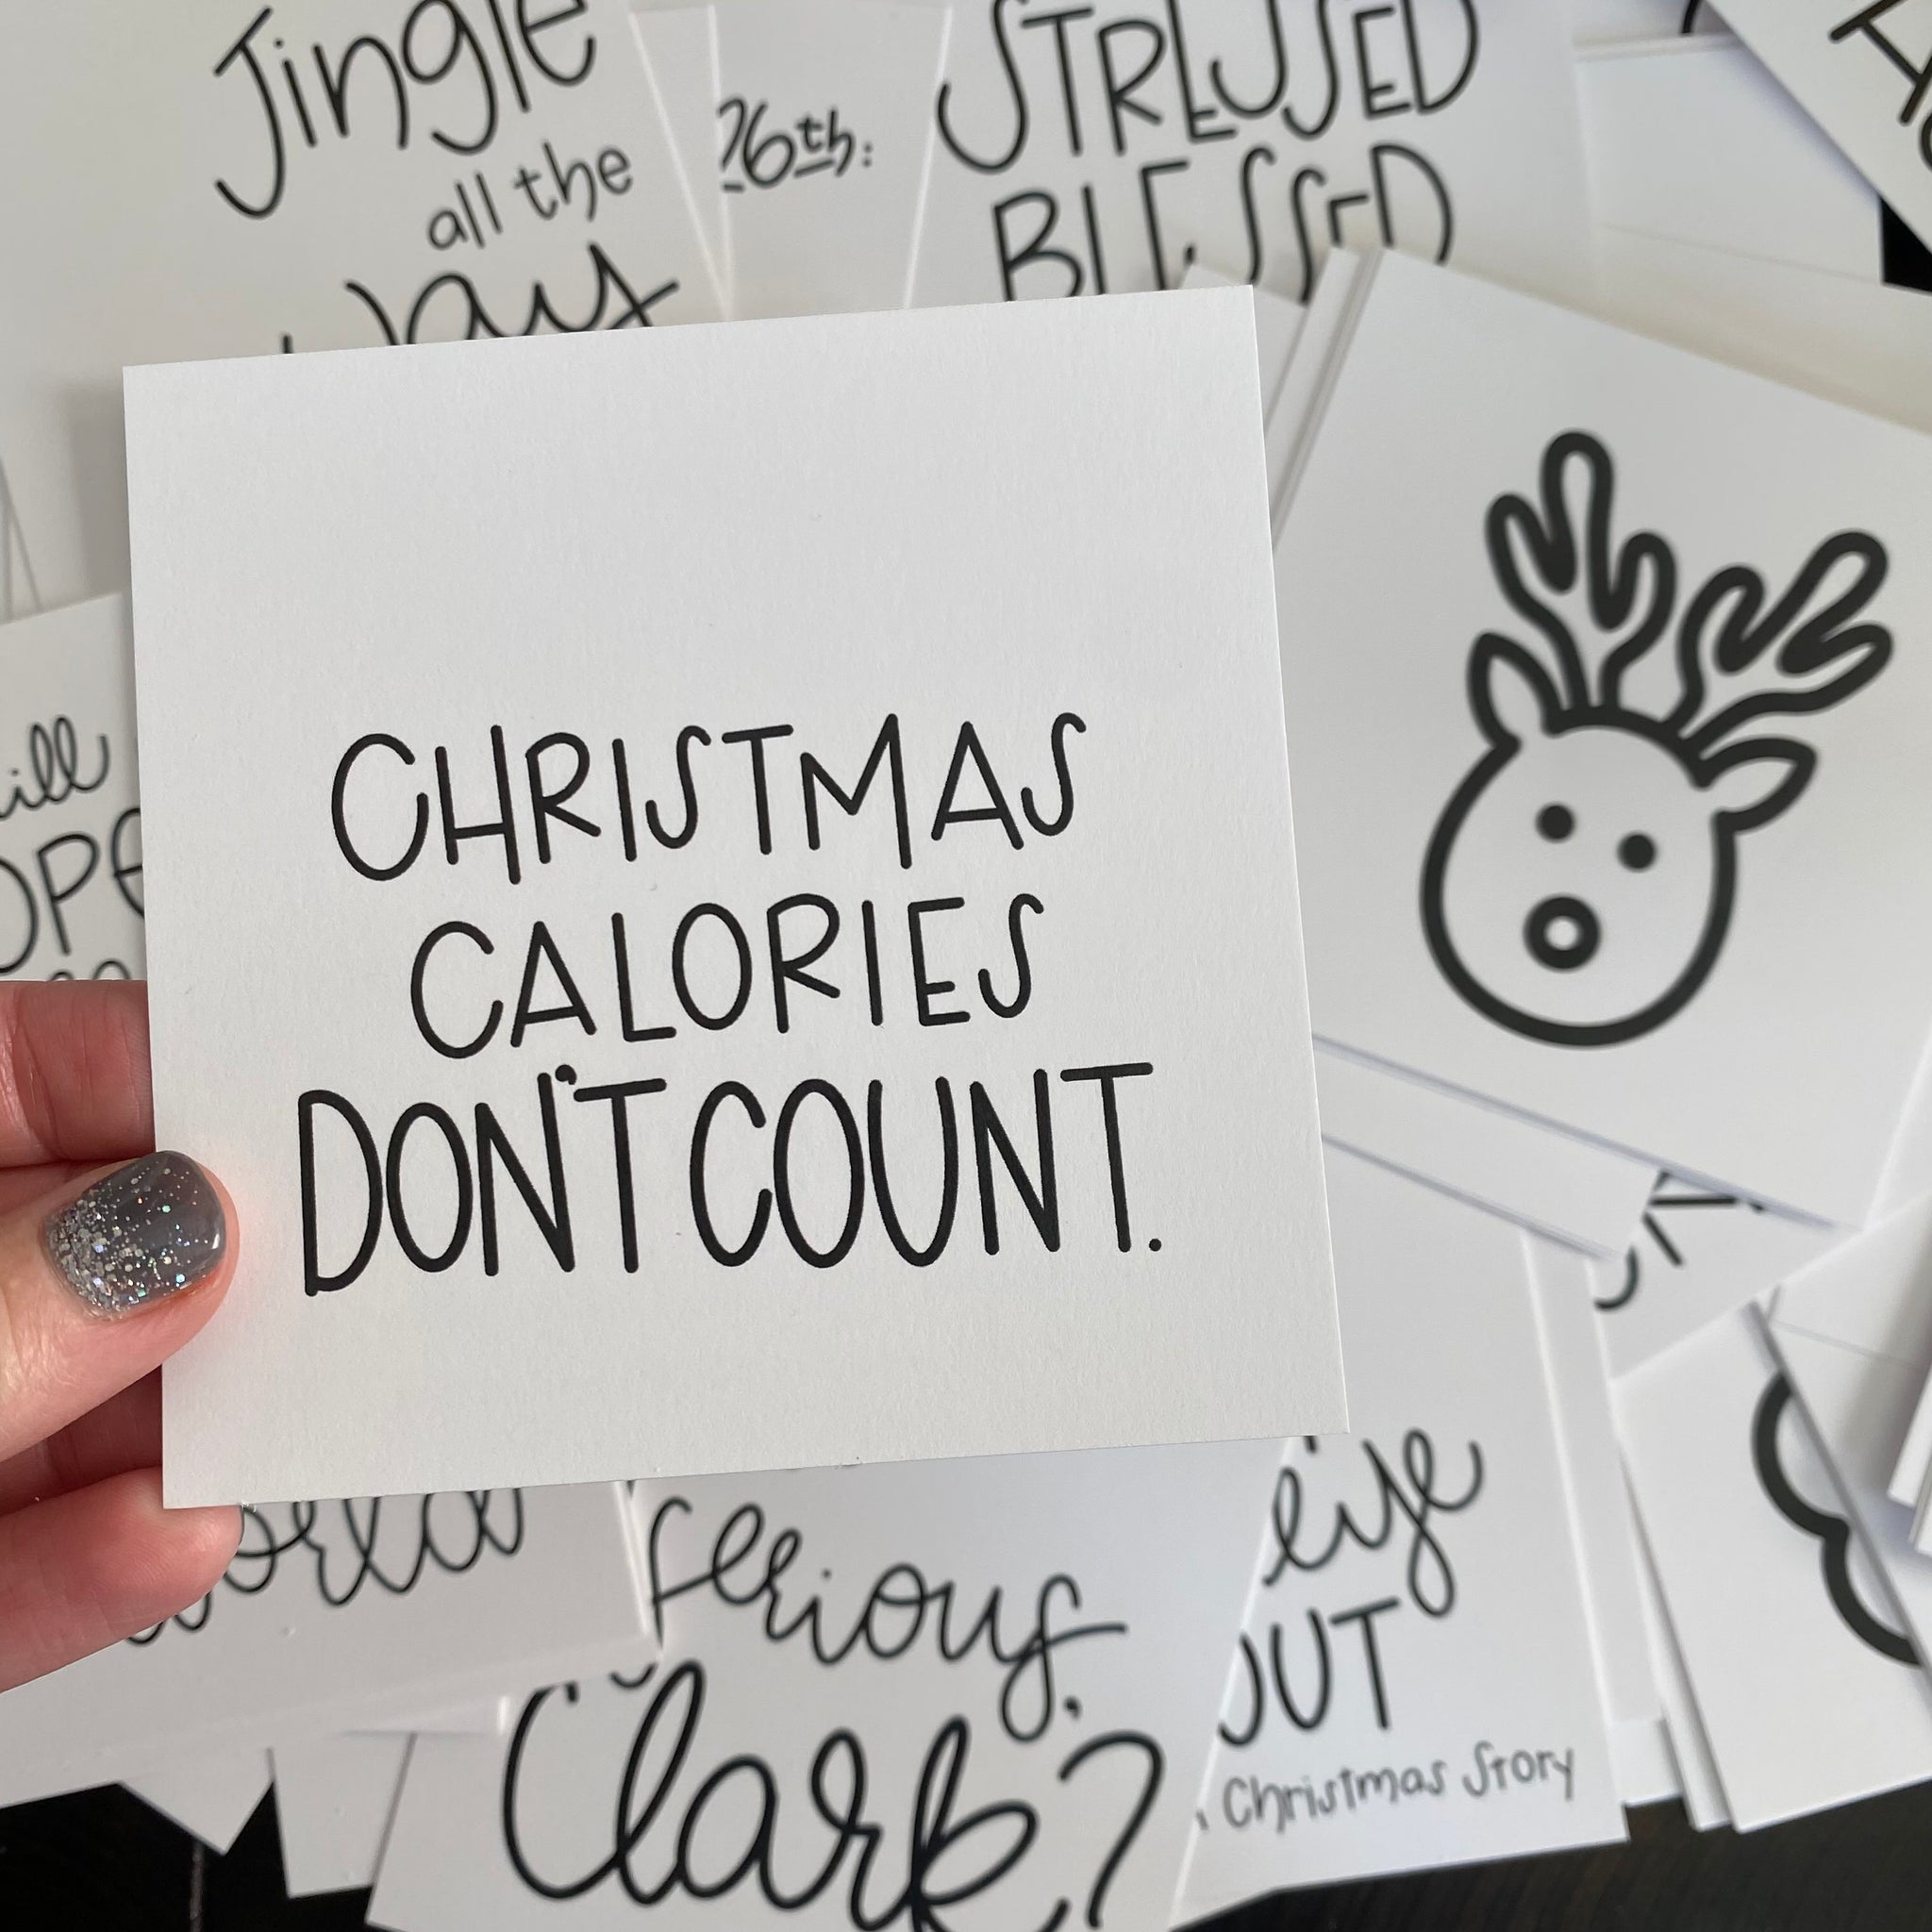 Jingle
all the
Way
26th:
STRESSED
BLESSED
CHRISTMAS
CALORIES
DON'T COUNT.
World
serious,
Clark?
eye
OUT
Christmas Story